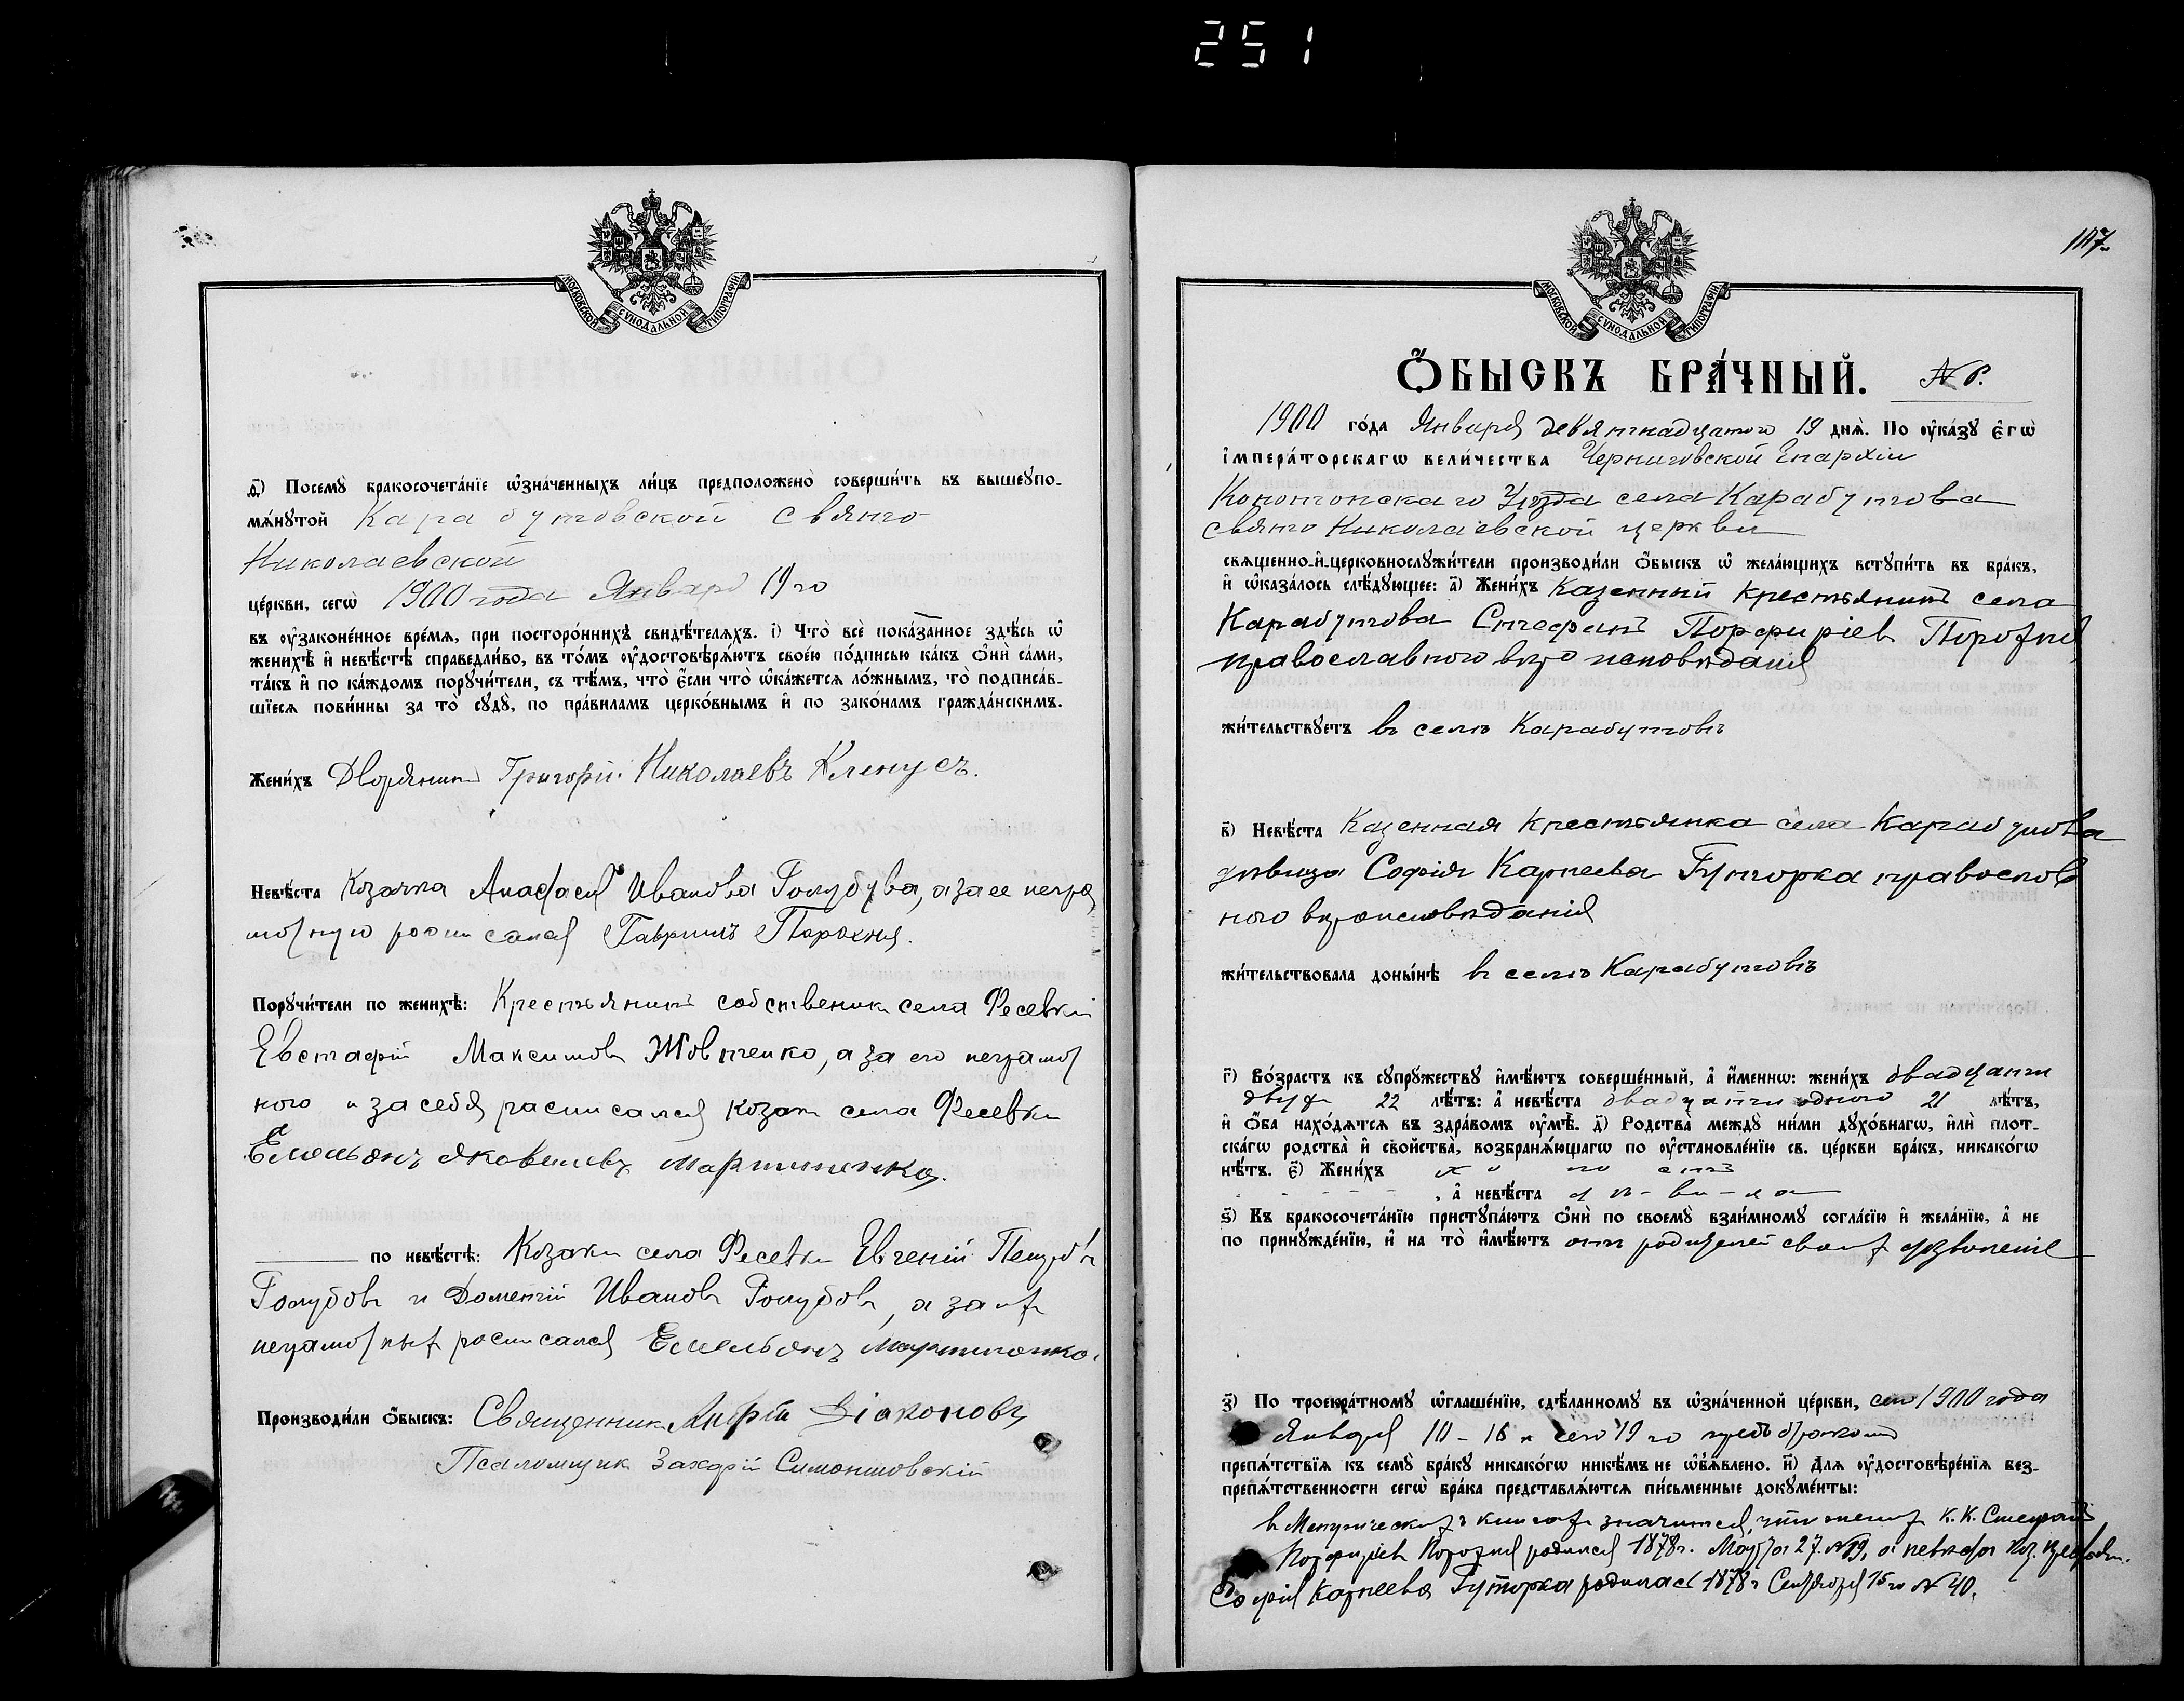 251
МОСКОВСКОЙ СѴНОДАЛЬНОЙ ТИПОГРАФІИ
д҃і) Посемꙋ̀ бракосочета́нїе ѡ҆зна́ченныхъ ли́цъ предположено̀ соверши́ть въ вышеꙋпо-
мѧ́нꙋтой Карабутовской Свято-
Николаевской
це́ркви, сегѡ̀ 1900 года Января 19 го
въ ᲂу҆законе́нное вре́мѧ, при посторо́ннихъ свидѣ́телѧхъ. і҃) Что̀ всѐ пока́занное здѣ́сь ѡ҆
женихѣ̀ и҆ невѣ́стѣ справедли́во, въ то́мъ ᲂу҆достовѣрѧ́ютъ свое́ю по́дписью ка́къ ѻ҆нѝ са́ми,
та́къ и҆ по ка́ждомъ порꙋчи́тели, съ тѣ́мъ, что̀ є҆́сли что̀ ѡ҆ка́жетсѧ ло́жнымъ, то̀ подписа́в-
шїесѧ пови́нны за то̀ сꙋдꙋ̀, по пра́виламъ церко́внымъ и҆ по зако́намъ гражда́нскимъ.
Жени́хъ Дворянинъ Григорій Николаевъ Кленусъ.
Невѣ́ста Козачка Анафасія Иванова Голубова, а за ее негра
мотную росписался Гавріилъ Порохня.
Порꙋчи́тели по женихѣ̀: Крестьянинъ собственикъ села Фесевки
Евстафій Максимовъ Жовтенко, а за его неграмот
ного и за себя расписался козакъ села Фесевки
Емельянъ Яковлевъ Мартиненко.
по невѣ́стѣ: Козаки села Фесевки Евгеній
Голубовъ и Доментій Ивановъ Голубовъ, а за их
неграмотных росписался Емельянъ Мартиненко.
Производи́ли ѻ҆́быскъ: Священникъ Андрій Діаконовъ
Псаломщик Захарій Симонтовскій
147
МОСКОВСКОЙ СѴНОДАЛЬНОЙ ТИПОГРАФІИ
Ѻ҆́БЫСКЪ БРА́ЧНЫЙ. N 6.
1900 го́да Января девятнадцатого 19 днѧ̀. По ᲂу҆ка́зꙋ є҆гѡ̀
і҆мпера́торскагѡ вели́чества Черниговской Епархіи
Конотопскаго Уѣзда села Карабутова
Свято Николаевской церкви
свѧще́нно-и҆-церковнослꙋжи́тели производи́ли ѻ҆́быскъ ѡ҆ жела́ющихъ встꙋпи́ть въ бра́къ,
и҆ ѡ҆каза́лось слѣ́дꙋющее: а҃) Жени́хъ Казенный крестьянинъ села
Карабутова Стефанъ Порфиріев Порохня
православного вѣроисповѣданія
жи́тельствꙋетъ в селѣ Карабутовѣ
в҃) Невѣ́ста Казенная крестьянка села Карабутова
дѣвица Софія Карпеева Гуторка православ
ного вѣроисповѣданія
жи́тельствовала доны́нѣ в селѣ Карабутовѣ
г҃) Во́зрастъ къ сꙋпрꙋ́жествꙋ и҆мѣ́ютъ соверше́нный, а҆ и҆́меннѡ: жени́хъ двадцати
двух 22 лѣ́тъ: а҆ невѣ́ста двадцати одного 21 лѣ́тъ,
и҆ ѻ҆́ба нахо́дѧтсѧ въ здра́вомъ ᲂу҆мѣ̀. д҃) Родства̀ междꙋ̀ ни́ми дꙋхо́внагѡ, и҆лѝ плот-
ска́гѡ родства̀ и҆ сво́йства̀, возбранѧ́ющагѡ по ᲂу҆становле́нїю св. це́ркви бра́къ, никако́гѡ
нѣ́тъ. є҃) Жени́хъ х о ло стъ
, а҆ невѣ́ста дѣ - ви - ца
ѕ҃) Къ бракосочета́нїю пристꙋпа́ютъ ѻ҆нѝ по своемꙋ̀ взаи́мномꙋ согла́сїю и҆ жела́нїю, а҆ не
по принꙋжде́нїю, и҆ на то̀ и҆мѣ́ютъ отъ родителей своих дозволеніе
з҃) По троекра́тномꙋ ѡ҆глаше́нїю, сдѣ́ланномꙋ въ ѡ҆зна́ченной це́ркви, сего 1900 года
Января 10 - 16 и сего 19 го предъ бракомъ
препѧ́тствїѧ къ семꙋ̀ бра́кꙋ никако́гѡ никѣ́мъ не ѡ҆б̾ѧ́влено. и҃) Длѧ ᲂу҆достовѣре́нїѧ без-
препѧ́тственности сегѡ̀ бра́ка представлѧ́ютсѧ пи́сьменные докꙋме́нты:
в Метрических книгах значится, что жених К. К. Стефанъ
Порфиріев Порохня родился 1878 г. Марта 27. N 19, а невѣста
Софія Карпеева Гуторка родилась 1878 г Сентября 15 го N 40.